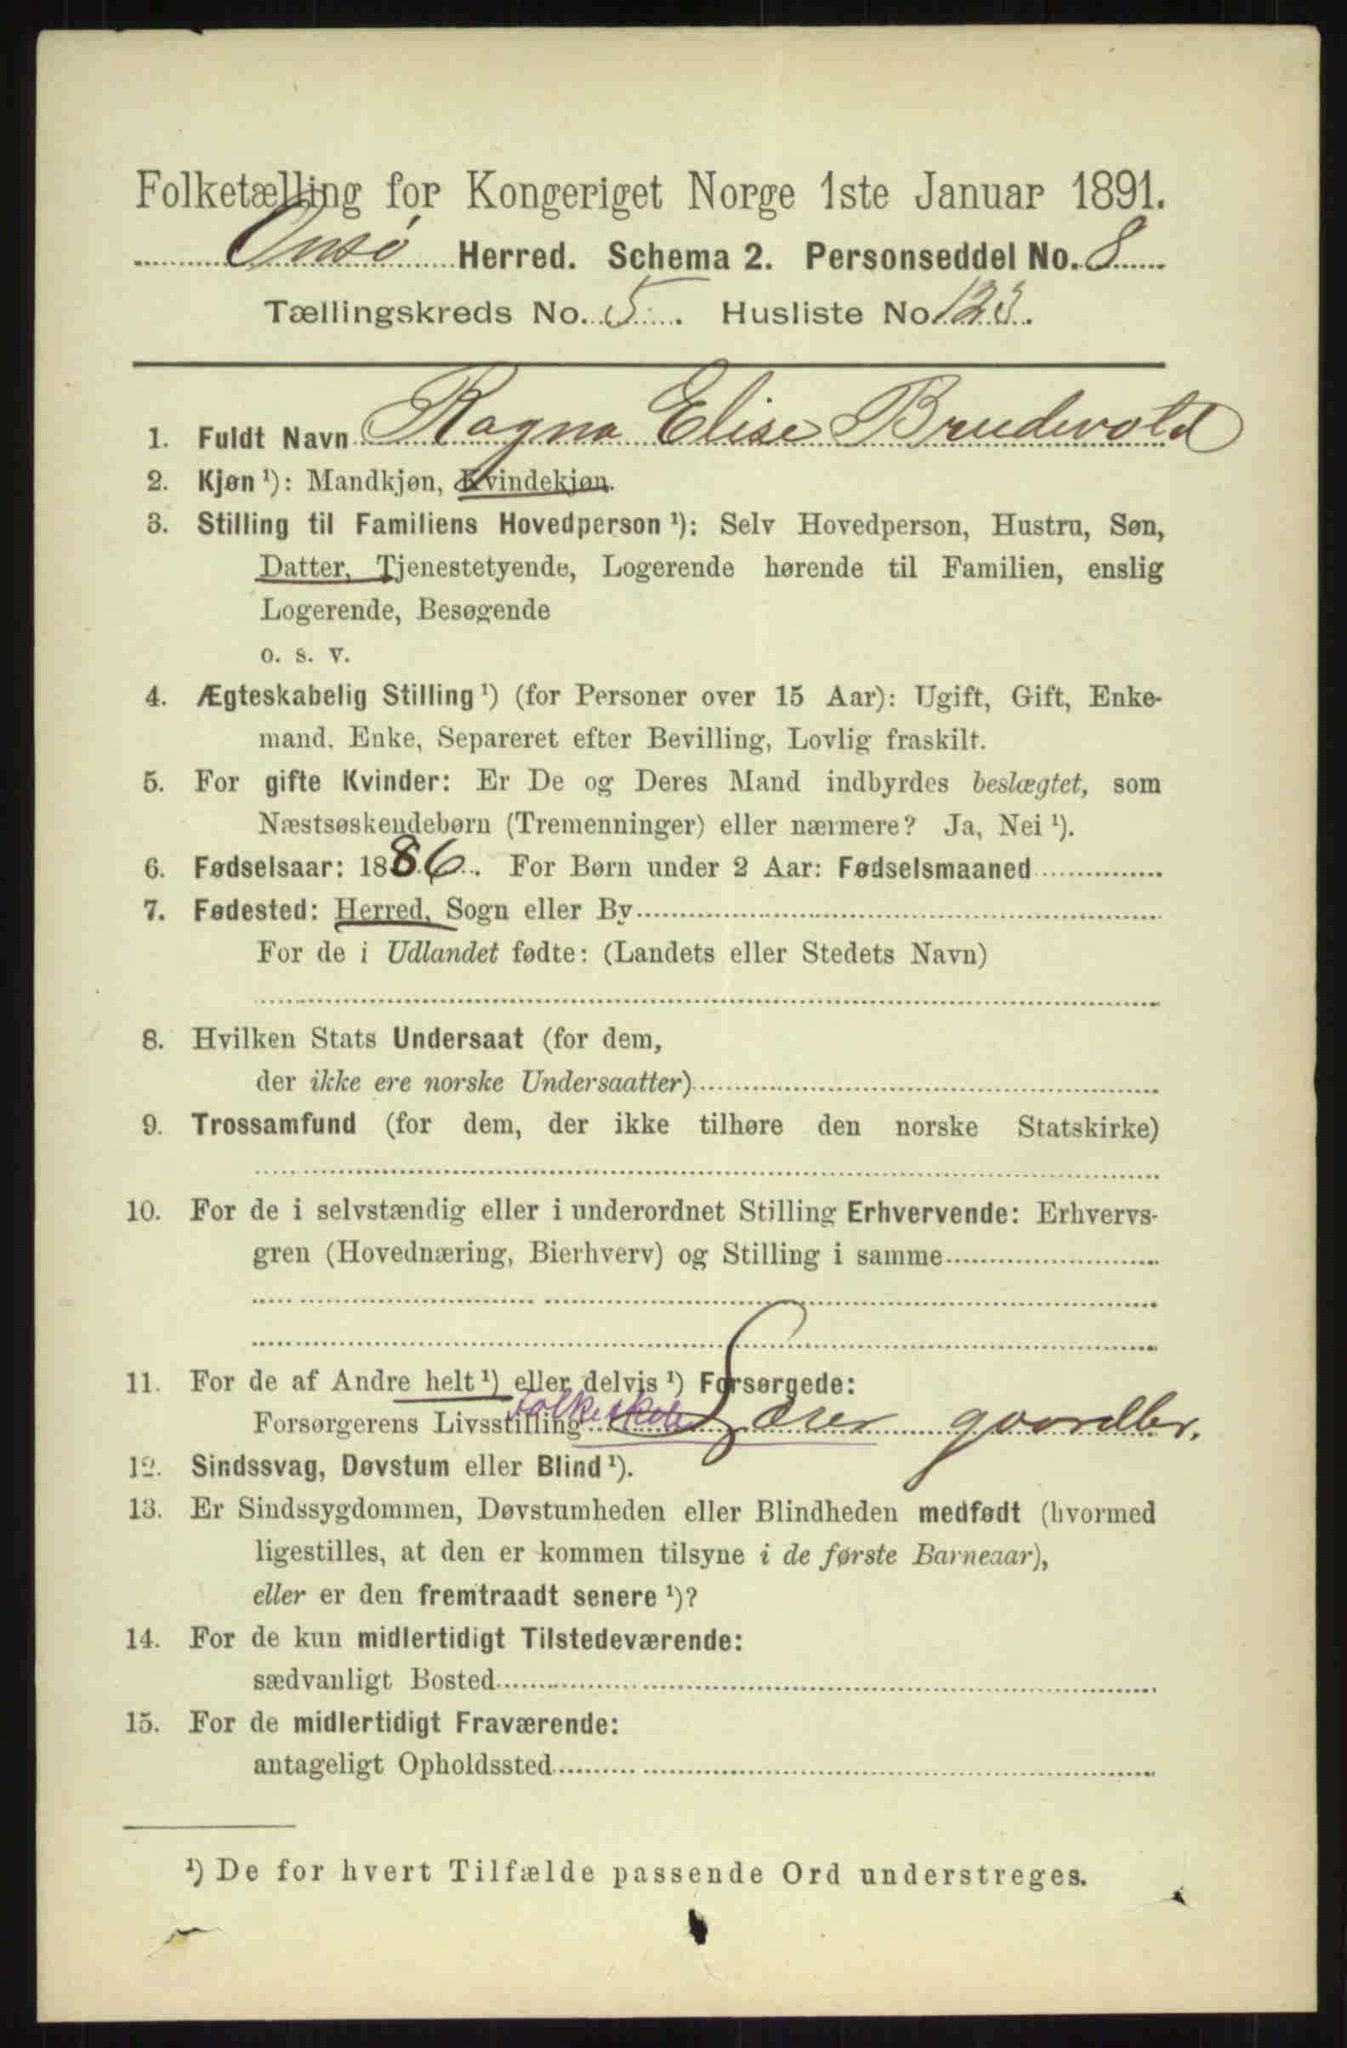 Folketælling for Kongeriget Norge 1ste Januar 1891.
Onsø Herred. Schema 2. Personseddel No. 8
Tællingskreds No. 5. Husliste No 123.
1. Fuldt Navn Ragna Elise Brudevold
2. Kjøn ¹): Mandkjøn, Kvindekjøn.
3. Stilling til Familiens Hovedperson ¹): Selv Hovedperson, Hustru, Søn,
Datter, Tjenestetyende, Logerende hørende til Familien, enslig
Logerende, Besøgende
o. s. v.
4. Ægteskabelig Stilling ¹) (for Personer over 15 Aar): Ugift, Gift, Enke-
mand, Enke, Separeret efter Bevilling, Lovlig fraskilt.
5. For gifte Kvinder: Er De og Deres Mand indbyrdes beslægtet, som
Næstsøskendebørn (Tremenninger) eller nærmere? Ja, Nei ¹).
6. Fødselsaar: 1886. For Børn under 2 Aar: Fødselsmaaned
7. Fødested: Herred, Sogn eller By
For de i Udlandet fødte: (Landets eller Stedets Navn)
8. Hvilken Stats Undersaat (for dem,
der ikke ere norske Undersaatter)
9. Trossamfund (for dem, der ikke tilhøre den norske Statskirke)
10. For de i selvstændig eller i underordnet Stilling Erhvervende: Erhvervs-
gren (Hovednæring, Bierhverv) og Stilling i samme
11. For de af Andre helt ¹) eller delvis ¹) Forsørgede:
Folkeskole
Forsørgerens Livsstilling Lærer gaardbr.
12. Sindssvag, Døvstum eller Blind ¹).
13. Er Sindssygdommen, Døvstumheden eller Blindheden medfødt (hvormed
ligestilles, at den er kommen tilsyne i de første Barneaar),
eller er den fremtraadt senere ¹)?
14. For de kun midlertidigt Tilstedeværende:
sædvanligt Bosted
15. For de midlertidigt Fraværende:
antageligt Opholdssted
¹) De for hvert Tilfælde passende Ord understreges.